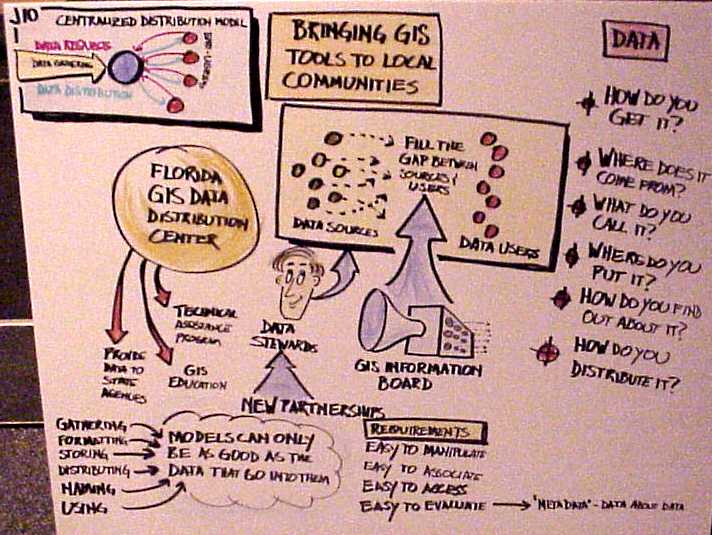 J10
1
CENTRALIZED DISTRIBUTION MODEL
DATA REQUESTS
DATA GATHERING
DATA DISTRIBUTION
END-USERS
BRINGING GIS
TOOLS TO LOCAL
COMMUNITIES
FILL THE
GAP BETWEEN
SOURCES &
USERS
DATA SOURCES
DATA USERS
FLORIDA
GIS DATA
DISTRIBUTION
CENTER
PROVIDE
DATA TO
STATE
AGENCIES
TECHNICAL
ASSISTANCE
PROGRAM
GIS
EDUCATION
DATA
STEWARDS
GIS INFORMATION
BOARD
NEW PARTNERSHIPS
GATHERING
FORMATTING
STORING
DISTRIBUTING
NAMING
USING
MODELS CAN ONLY
BE AS GOOD AS THE
DATA THAT GO INTO THEM
REQUIREMENTS
EASY TO MANIPULATE
EASY TO ASSOCIATE
EASY TO ACCESS
EASY TO EVALUATE
"METADATA" - DATA ABOUT DATA
DATA
HOW DO YOU
GET IT?
WHERE DOES IT
COME FROM?
WHAT DO YOU
CALL IT?
WHERE DO YOU
PUT IT?
HOW DO YOU FIND
OUT ABOUT IT?
HOW DO YOU
DISTRIBUTE IT?